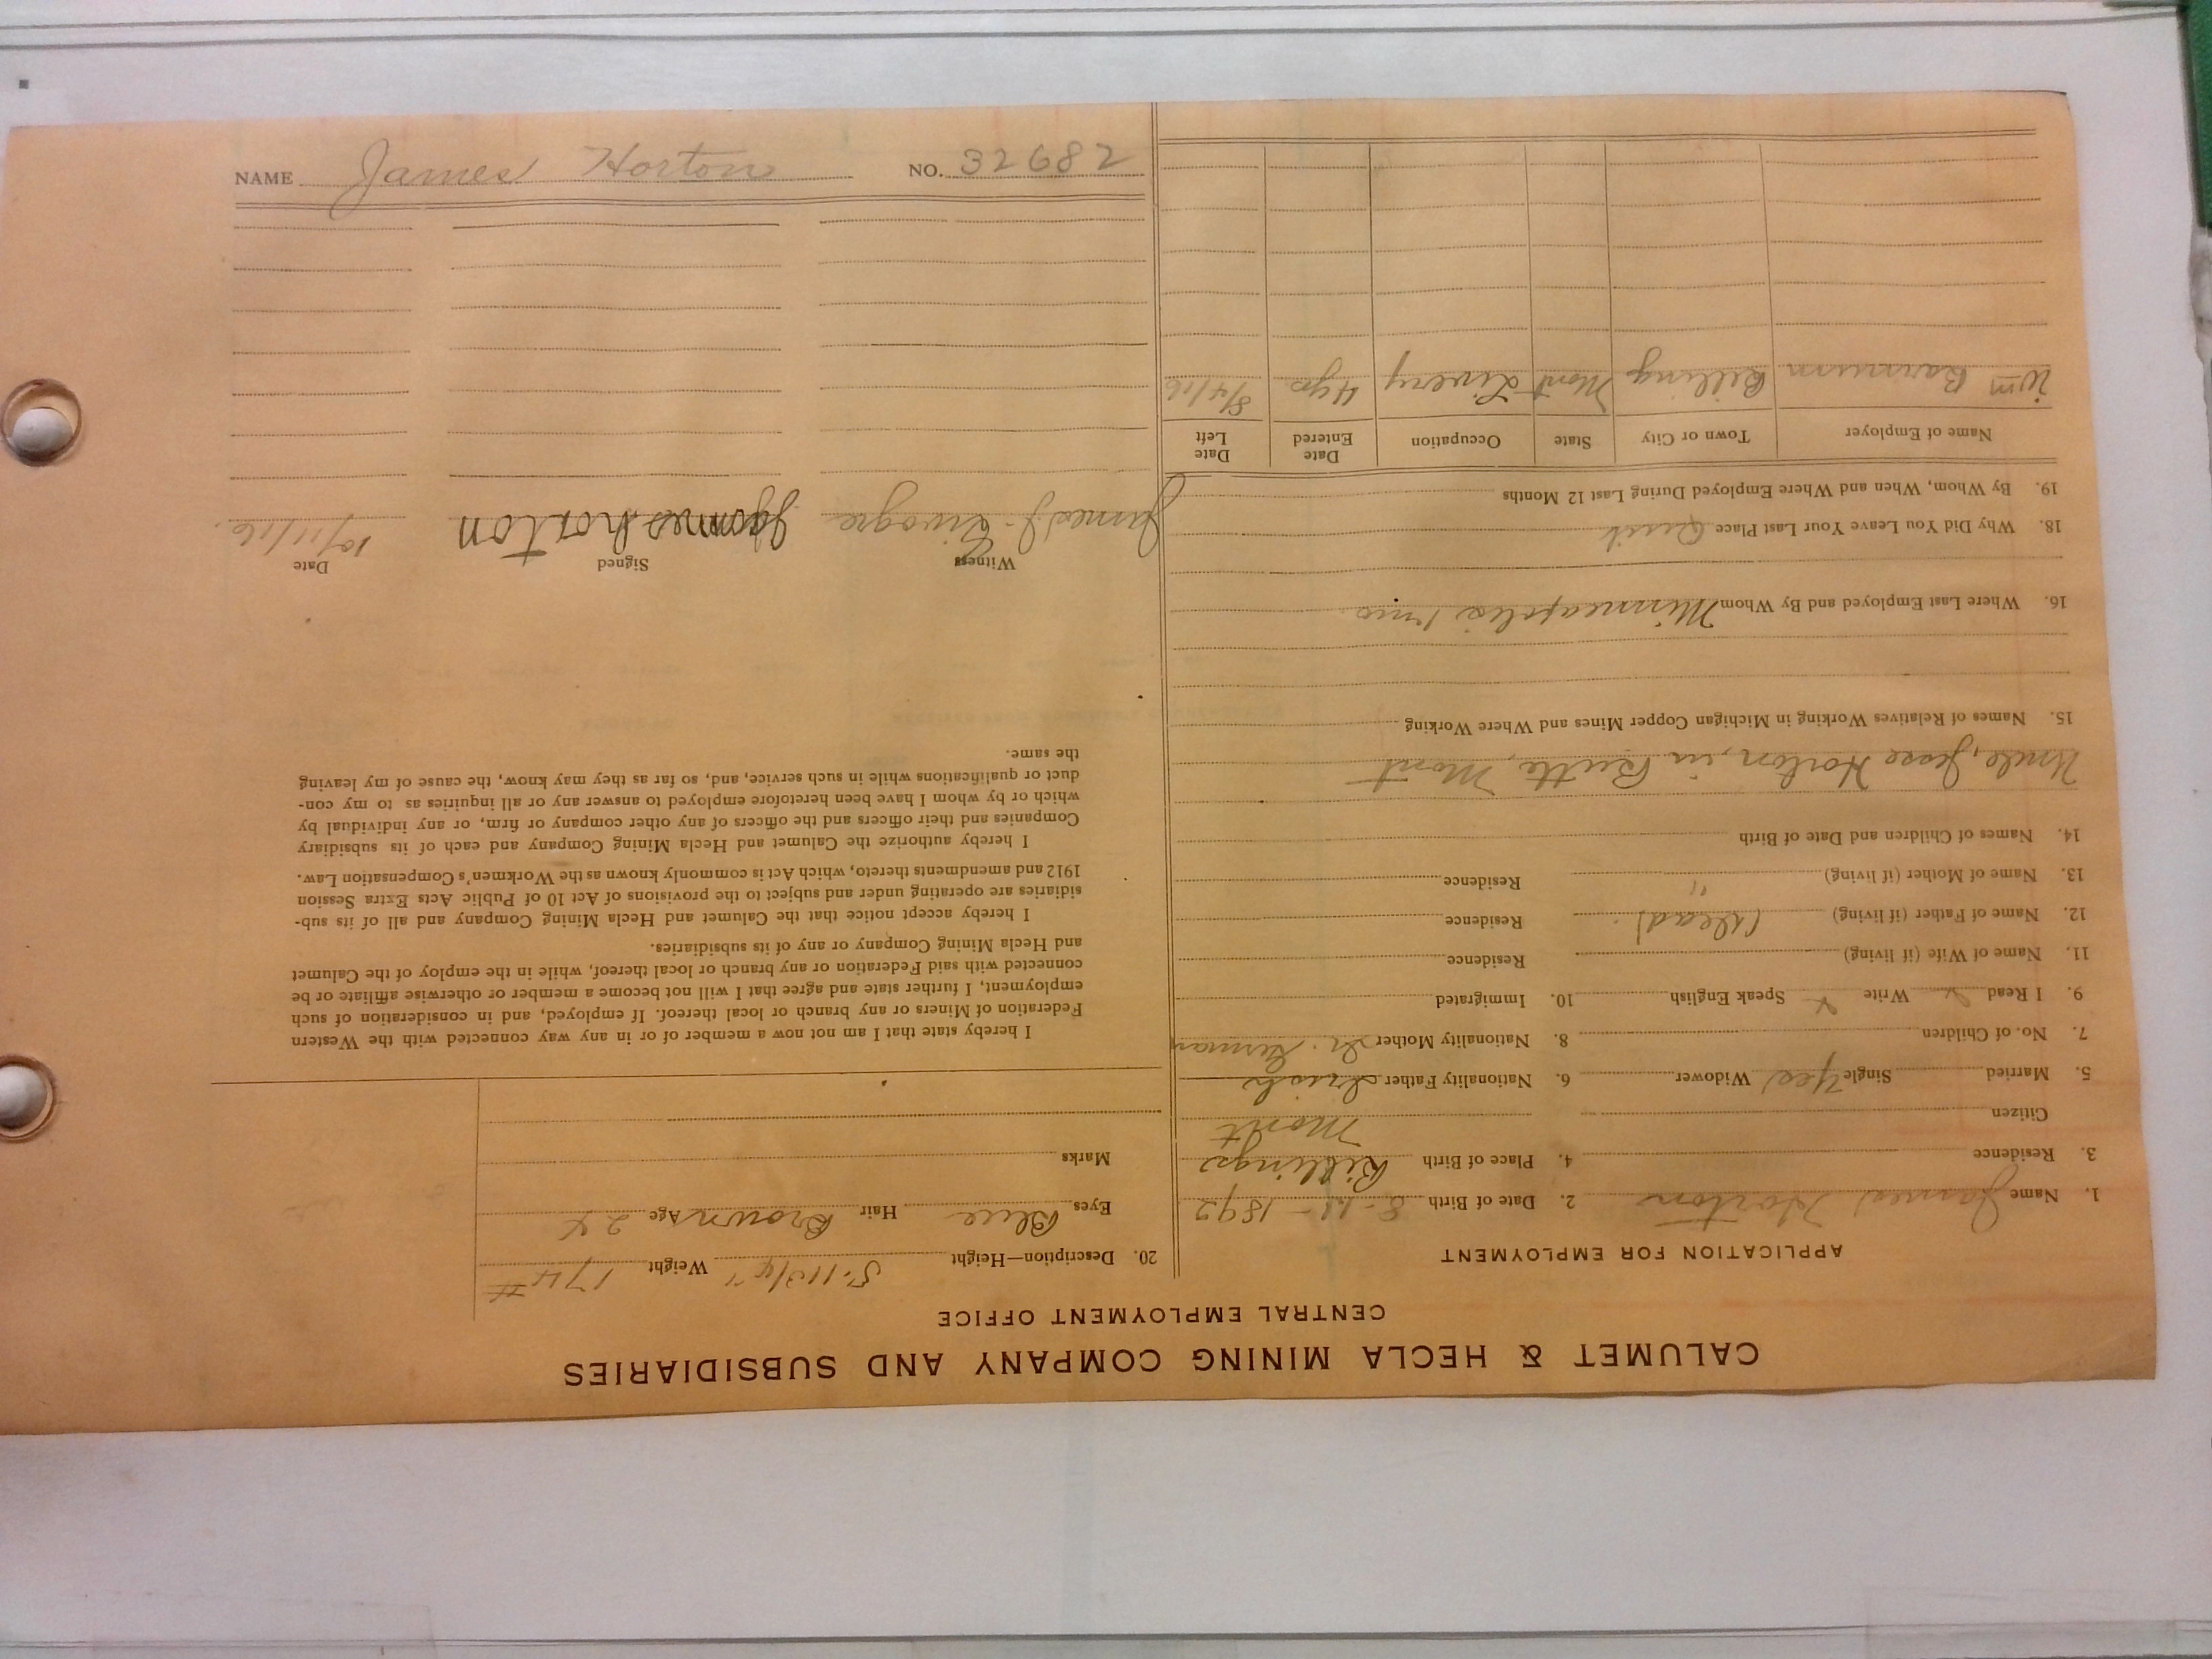 CALUMET & HECLA MINING COMPANY AND SUBSIDIARIES
CENTRAL EMPLOYMENT OFFICE
APPLICATION FOR EMPLOYMENT
1. Name James Horton 2. Date of Birth 8-11-1892
3. Residence 4. Place of Birth Billings
Citizen Mont
5. Married Single Yes Widower 6. Nationality Father Irish
7. No. of Children 8. Nationality Mother Ir. German
9. I Read Write Speak English 10. Immigrated
11. Name of Wife (if living) Residence
12. Name of Father (if living) (Dead) Residence
13. Name of Mother (if living) " Residence
14. Names of Children and Date of Birth
Uncle, Jesse Horton, in Butte, Mont
15. Names of Relatives Working in Michigan Copper Mines and Where Working
16. Where Last Employed and By Whom Minneapolis 1 mo.
18. Why Did You Leave Your Last Place Quit
19. By Whom, When and Where Employed During Last 12 Months
Name of Employer Town or City State Occupation Date Entered Date Left
Wm Barnum Billing Mont Livery 4 yrs 8/4/16
20. Description—Height 5' 11 3/4" Weight 174 #
Eyes Blue Hair Brown Age 24
Marks
I hereby state that I am not now a member of or in any way connected with the Western
Federation of Miners or any branch or local thereof. If employed, and in consideration of such
employment, I further state and agree that I will not become a member or otherwise affiliate or be
connected with said Federation or any branch or local thereof, while in the employ of the Calumet
and Hecla Mining Company or any of its subsidiaries.
I hereby accept notice that the Calumet and Hecla Mining Company and all of its sub-
sidiaries are operating under and subject to the provisions of Act 10 of Public Acts Extra Session
1912 and amendments thereto, which Act is commonly known as the Workmen's Compensation Law.
I hereby authorize the Calumet and Hecla Mining Company and each of its subsidiary
Companies and their officers and the officers of any other company or firm, or any individual by
which or by whom I have been heretofore employed to answer any or all inquiries as to my con-
duct or qualifications while in such service, and, so far as they may know, the cause of my leaving
the same.
Witness Signed Date
James J. James horton 10/11/16.
NAME James Horton NO. 32682